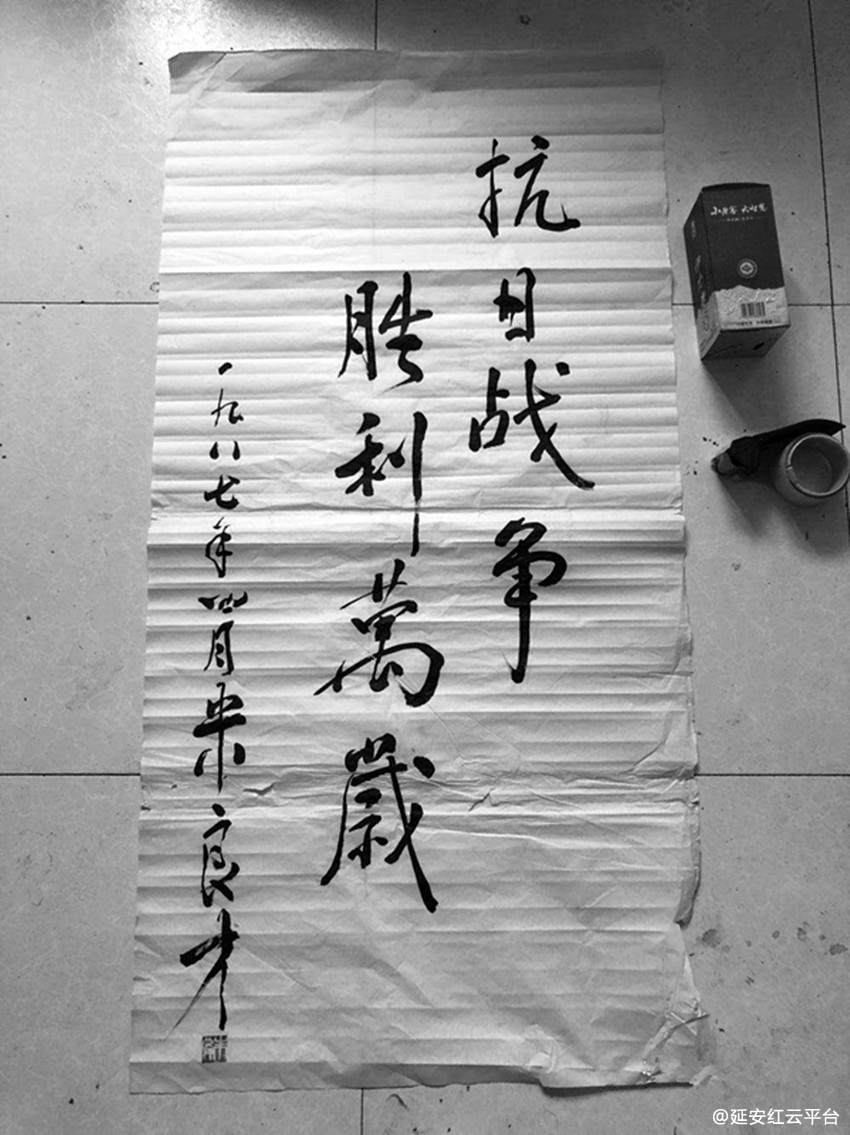 抗日战争
胜利萬歲
一九八七年四月朱良才
@延安红云平台